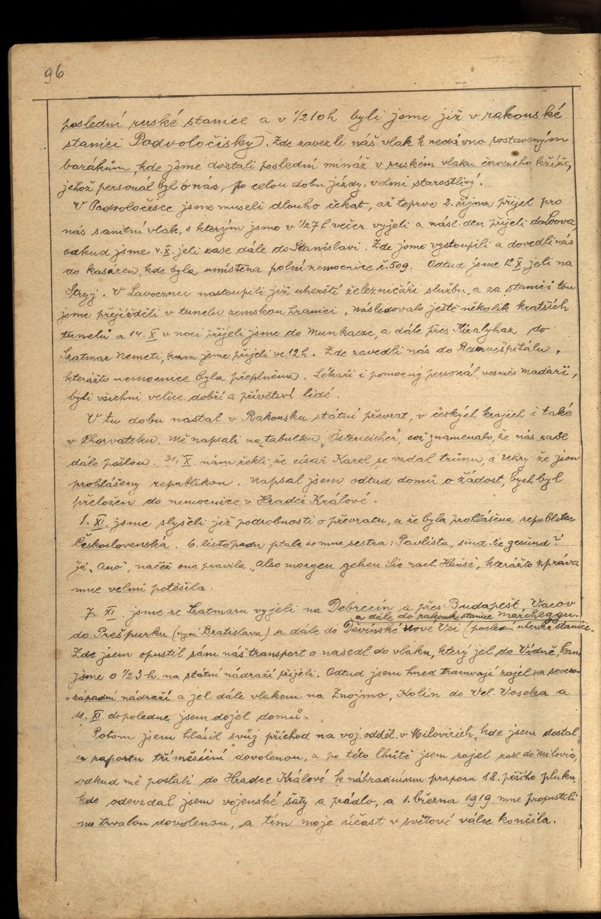 96
poslední ruské stanice a v ½10h byli jsme již v rakouské
stanici Podvoločisky). Zde zavezli náš vlak k nedávno postaveným
barákům, kde jsme dostali poslední mináž v ruském vlaku červeného kříže,
jehož personál byl o nás, po celou dobu jízdy, velmi starostlivý.
V Podvoločisce jsme museli dlouho čekat, až teprve 2. října, přijel pro
nás sanitní vlak, s kterým jsme v ½7h večer vyjeli a násl. den přijeli do Lvova,
odkud jsme 4.X. jeli zase dále do Stanislavi. Zde jsme vystoupili a dovedli nás
do kasáren, kde byla umístěna polní nemocnice č. 509. Odtud jsme 12.X. jeli na
Stryj. V Lavoczni nastoupili již uherští železničáři službu, a za stanicí tou
jsme přejížděli v tunelu zemskou hranici, následovalo ještě několik kratších
tunelů a 14. X v noci přijeli jsme do Munkacze, a dále přes Kiralyhaz do
Szatmar Nemeti, kam jsme přijeli ve 12h. Zde zavedli nás do Reservespitálu,
kterážto nemocnice byla přeplněna. Lékaři i pomocný personál, vesměs maďaři,
byli všichni velice dobří a přívětiví lidé.
V tu dobu nastal v Rakousku státní převrat, v českých krajích i také
v Chorvatsku. Mě napsali na tabulku „Österreicher", což znamenalo, že nás zašl
dále pošlou. 31. X. nám řekli, že císař Karel se vzdal trůnu, a Uhry že jsou
prohlášeny republikou. Napsal jsem odtud domů o žádost, bych byl
přeložen do nemocnice v Hradci Králové.
1. XI. jsme slyšeli již podrobnosti o převratu, a že byla prohlášena republika
Československá. 6. listopadu ptala se mne sestra: Pavlista, sind Sie gesund?
Já „Ano", načež ona pravila „Also morgen gehen Sie nach Hause", kterážto zpráva
mne velmi potěšila.
7. XI. jsme ze Szatmaru vyjeli na Debrecín a přes Budapešt, Vacov
a dále do rakouské stanice Marcheggu.
do Prešpurku (nyní Bratislava) a dále do Děvínské Nové Vsi (poslední uherská stanice.
Zde jsem opustil sám náš transport a nasedl do vlaku, který jel do Vídně, kam
jsme o ½3h. na státní nádraží přijeli. Odtud jsem hned tramvají zajel na severo-
-západní nádraží a jel dále vlakem na Znojmo, Kolín do Vel. Voseka a
11. XI dopoledne jsem dojel domů.
Potom jsem hlásil svůj příchod na voj. odděl. v Milovicích, kde jsem dostal
u raportu tříměsíční dovolenou, a po této lhůtě jsem zajel zase do Milovic,
odkud mě poslali do Hradce Králové k náhradnímu praporu 18. pěšího pluku,
kde odevzdal jsem vojenské šaty a prádlo, a 1. března 1919 mne propustili
na trvalou dovolenou, a tím moje účast v světové válce končila.